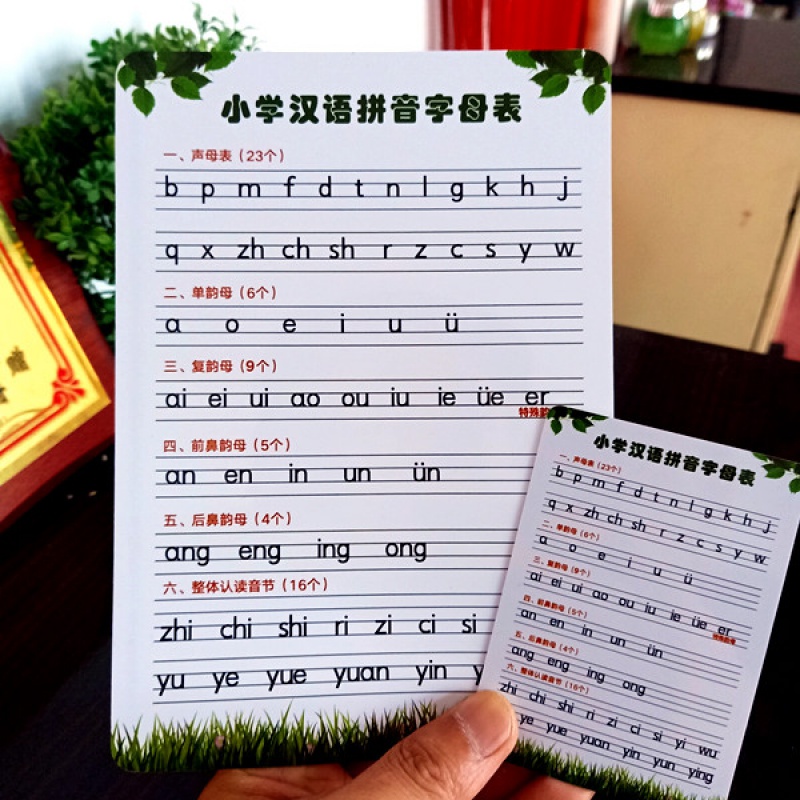 小学汉语拼音字母表
一、声母表（23个）
b p m f d t n l g k h j
q x zh ch sh r z c s y w
二、单韵母（6个）
a o e i u ü
三、复韵母（9个）
ai ei ui ao ou iu ie üe er
特殊韵
四、前鼻韵母（5个）
an en in un ün
五、后鼻韵母（4个）
ang eng ing ong
六、整体认读音节（16个）
zhi chi shi ri zi ci si
yu ye yue yuan yin y
小学汉语拼音字母表
一、声母表（23个）
b p m f d t n l g k h j
q x zh ch sh r z c s y w
二、单韵母（6个）
a o e i u ü
三、复韵母（9个）
ai ei ui ao ou iu ie üe er
特殊韵母
四、前鼻韵母（5个）
an en in un ün
五、后鼻韵母（4个）
ang eng ing ong
六、整体认读音节（16个）
zhi chi shi ri zi ci si yi wu
ye yue yuan yin yun ying